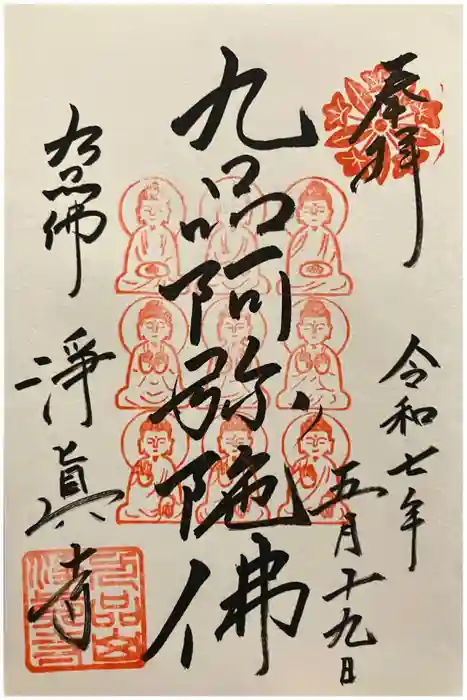 奉拝
令和七年
五月十九日
九品阿弥陀佛
九品佛
淨眞寺